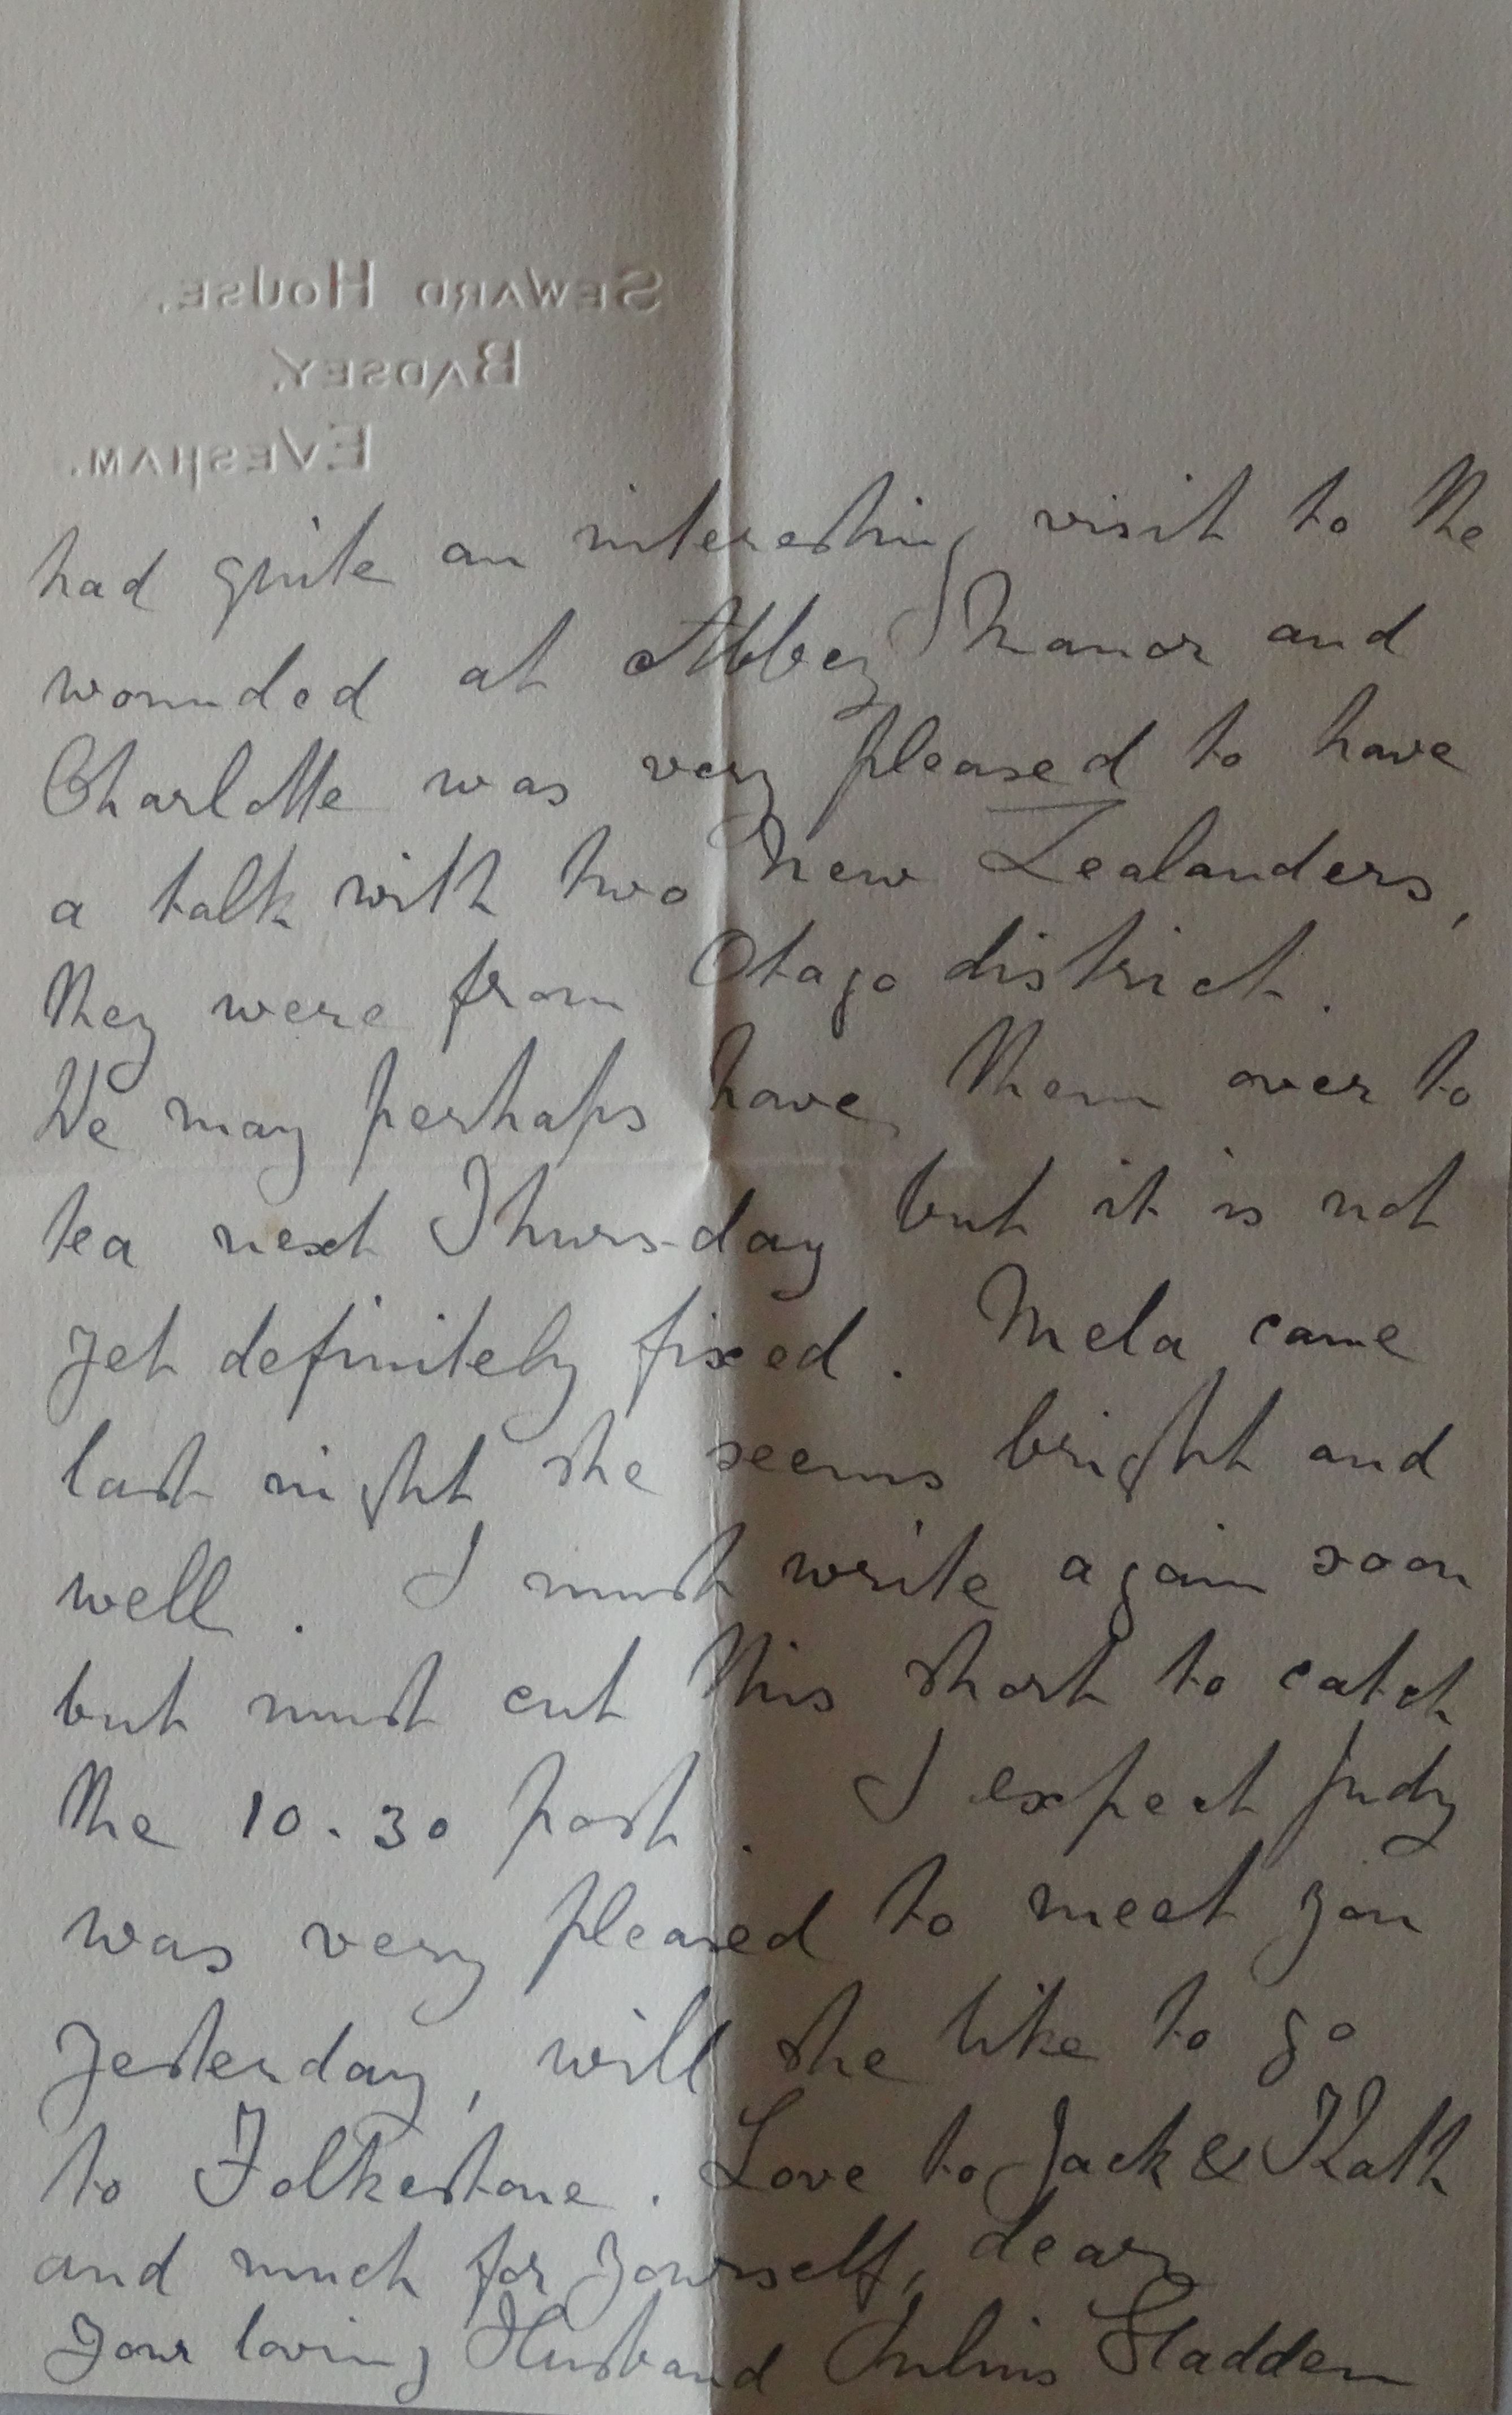 Seward House.
Badsey,
Evesham.
had quite an interesting visit to the
wounded at Abbey Manor and
Charlotte was very pleased to have
a talk with two New Zealanders,
they were from Otago district.
We may perhaps have them over to
tea next Thursday but it is not
yet definitely fixed. Mela came
last night she seems bright and
well. I must write again soon
but must cut this short to catch
the 10.30 post. I expect Judy
was very pleased to meet you
yesterday, will she like to go
to Folkestone. Love to Jack & Kath
and much for yourself, dear,
Your loving Husband Julius Sladden